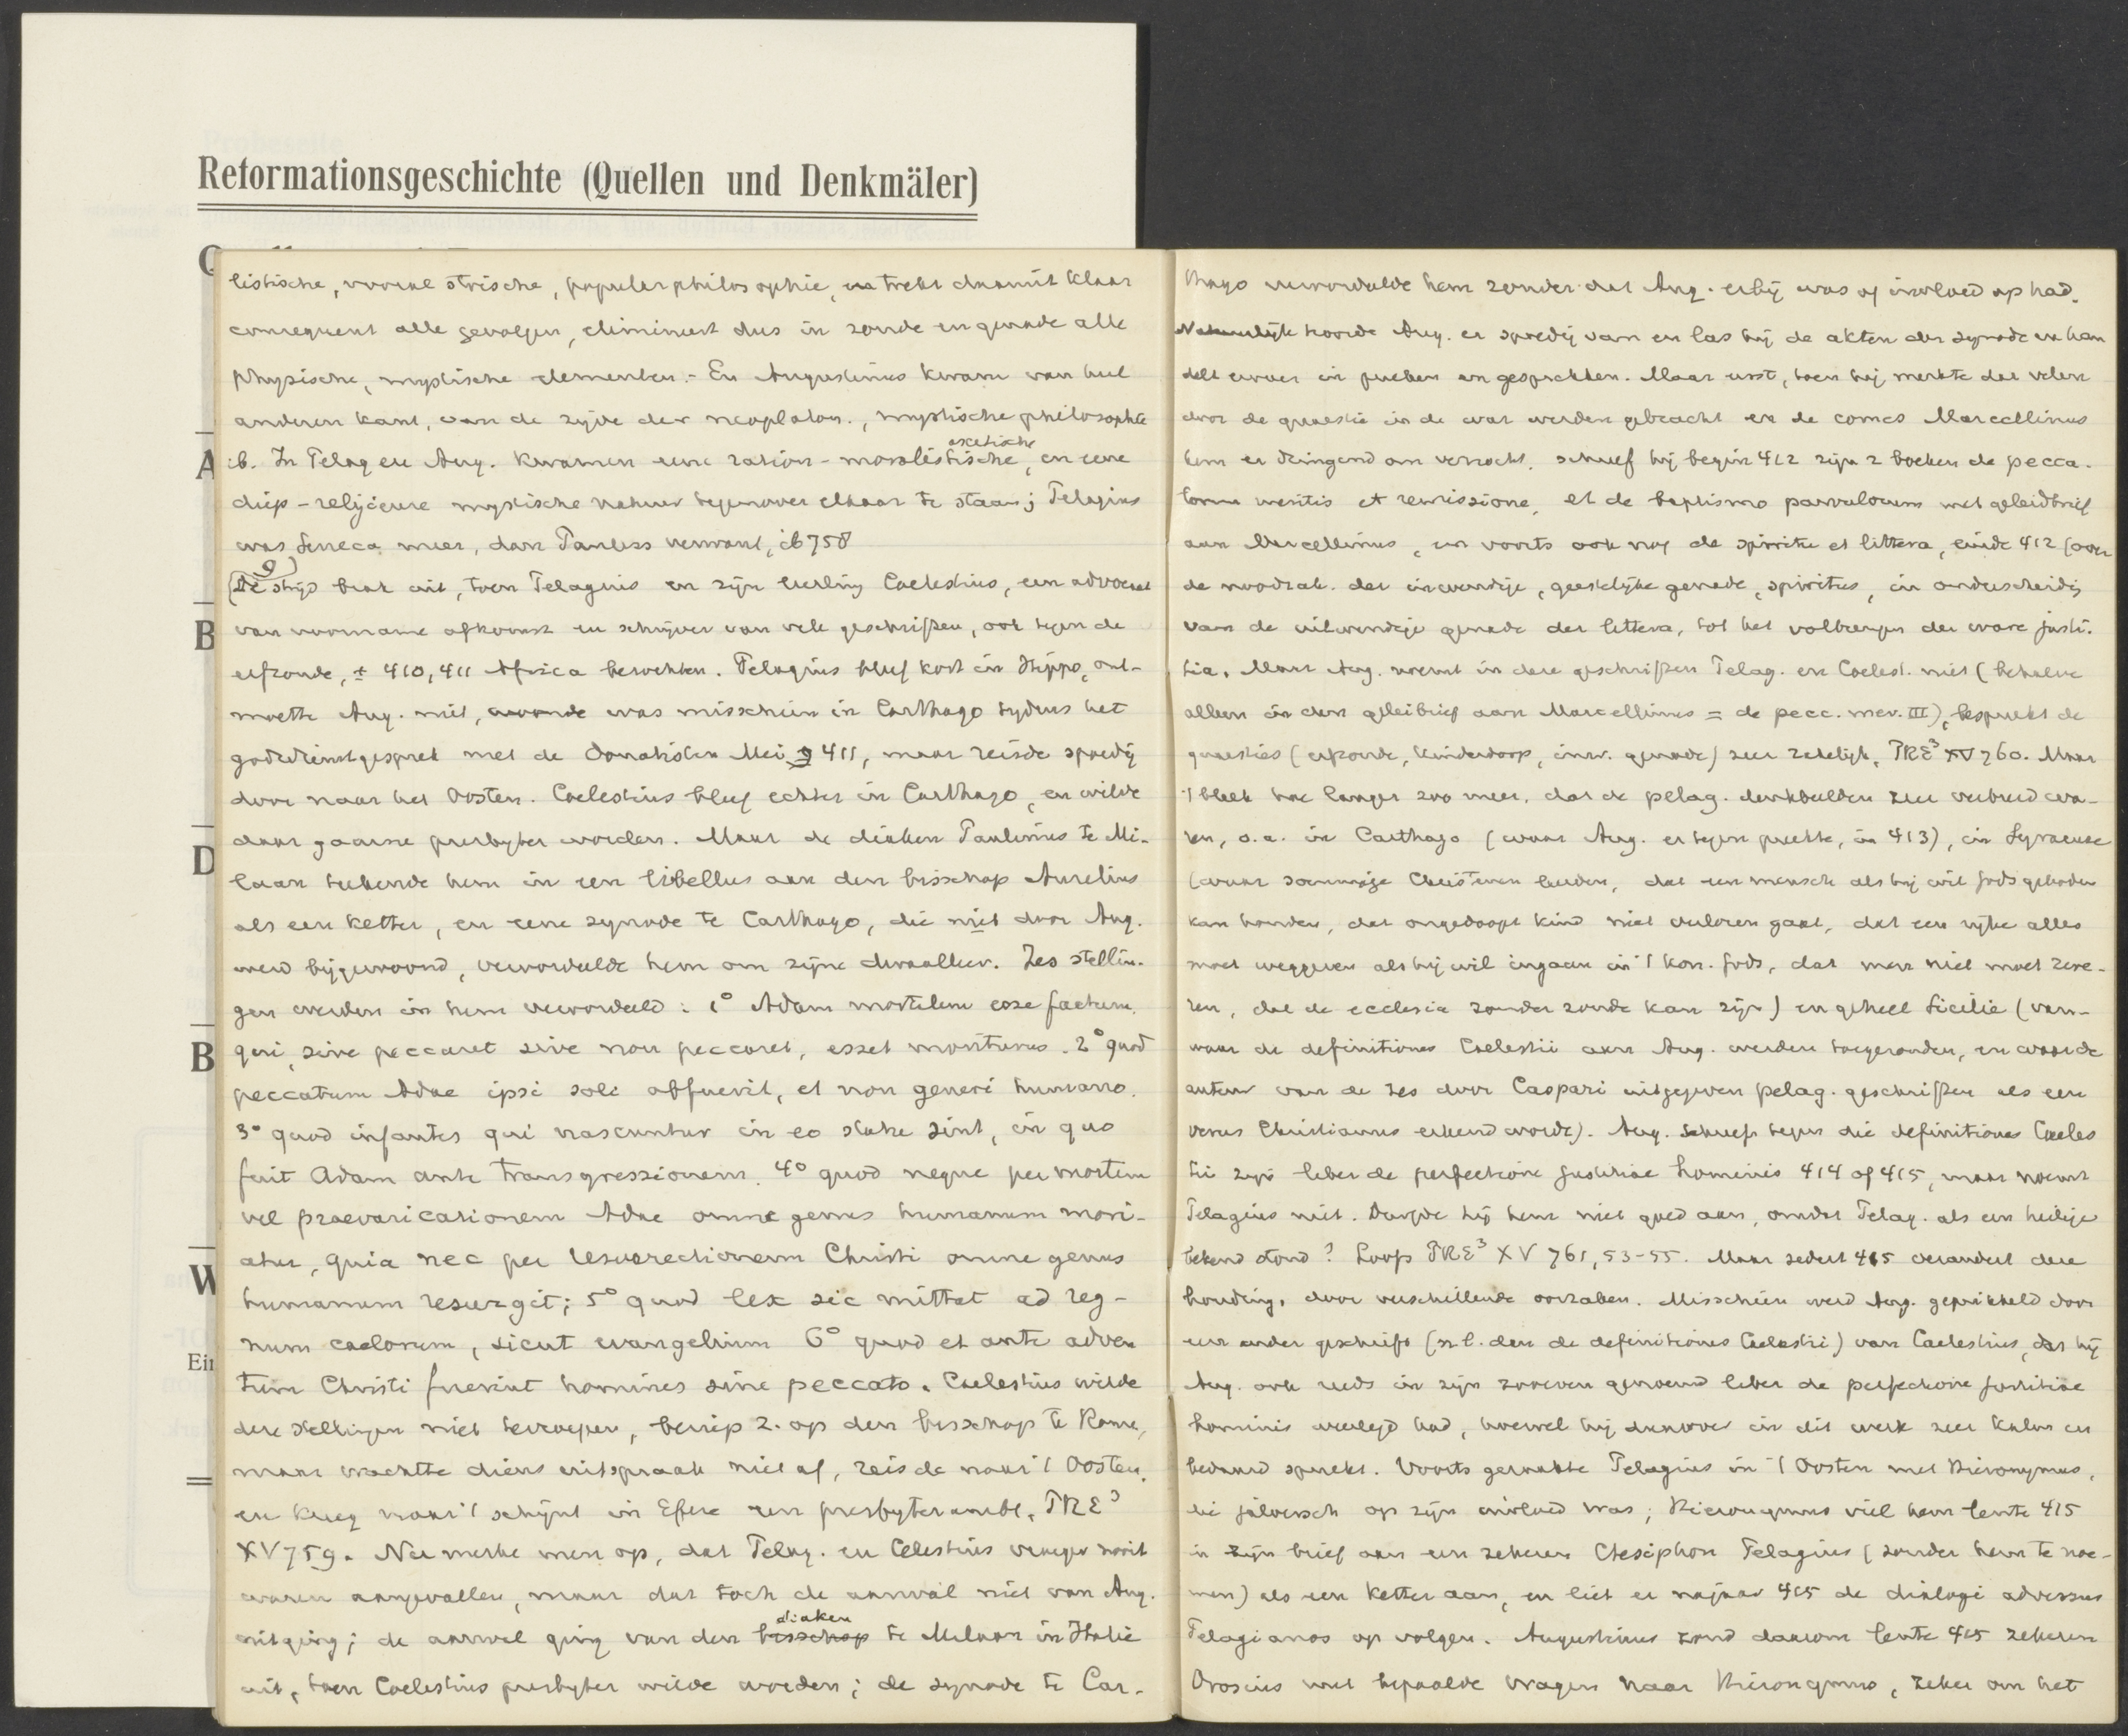 Reformationsgeschichte (Quellen und Denkmäler)
A
B
D
B
W
Ein
listische, vooral stoische, populair philosophie, en trekt daaruit klaar
consequent alle gevolgen, elimineert dus in zonde en genade alle
physische, mystische elementen. - En Augustinus kwam van heel
anderen kant, van de zijde der neoplaton., mystische philosophie
ib. In Pelag en Aug. kwamen eene ration-moralistische, ascetische en eene
diep-religieuse mystische natuur tegenover elkaar te staan; Pelagius
was Seneca meer, dan Paulus verwant, ib 758
(De strijd brak uit, toen Pelagius en zijn leerling Caelestius, een advocaat
van voorname afkomst en schrijver van vele geschriften, ook tegen de
erfzonde, ± 410, 411 Africa bezochten. Pelagius bleef kort in Hippo, ont-
moette Aug. niet, was misschien in Carthago tijdens het
godsdienstgesprek met de Donatisten Mei 411, maar reisde spoedig
door naar het Oosten. Caelestius bleef echter in Carthago, en wilde
daar gaarne presbyter worden. Maar de diaken Paulinus te Mi-
laan teekende hem in een libellus aan den bisschop Aurelius
als een ketter, en eene synode te Carthago, die niet door Aug.
werd bijgewoond, veroordeelde hem om zijne dwaalleer. Zes stellin-
gen werden in hem veroordeeld: 1° Adam mortalem esse factum,
qui, sive peccaret sive non peccaret, esset moriturus. 2° quod
peccatum Adae ipsi soli obfuerit, et non generi humano.
3° quod infantes qui nascuntur in eo statu sint, in quo
fuit Adam ante transgressionem. 4° quod neque per mortem
vel praevaricationem Adae omne genus humanum mori-
atur, quia nec per resurrectionem Christi omne genus
humanum resurgit; 5° quod lex sic mittat ad reg-
num caelorum, sicut evangelium 6° quod et ante adven
tum Christi fuerint homines sine peccato. Caelestius wilde
deze stellingen niet herroepen, beriep z. op den bisschop te Rome,
maar wachtte diens uitspraak niet af, reisde naar 't Oosten,
en kreeg naar 't schijnt in Efeze een presbyterambt, PRE³
XV 759. Nu merke men op, dat Pelag. en Celestius vroeger nooit
waren aangevallen, maar dat toch de aanval niet van Aug.
uitging; de aanval ging van den bisschop diaken te Milaan in Italie
uit, toen Caelestius presbyter wilde worden; de synode te Car-
thago veroordeelde hem zonder dat Aug. erbij was of invloed op had.
Natuurlijk hoorde Aug. er spoedig van en las hij de akten der synode en han
delt erover in preken en gesprekken. Maar eerst, toen hij merkte dat velen
door de quaestie in de war werden gebracht en de comes Marcellinus
hem er dringend om verzocht, schreef hij begin 412 zijn 2 boeken de pecca-
torum meritis et remissione, et de baptismo parvulorum met geleidbrief
aan Marcellinus, en voorts ook nog de spiritu et littera, einde 412 (over
de noodzak. der inwendige, geestelijke genade, spiritus, in onderscheidig
van de uitwendige genade der littera, tot het volbrengen der ware justi-
tia. Maar Aug. noemt in deze geschriften Pelag. en Caelest. niet (behalve
alleen in den geleibrief aan Marcellinus = de pecc. mer. III), bespreekt de
quaesties (erfzonde, kinderdoop, inw. genade) zeer zakelijk, PRE³ XV 760. Maar
't bleek hoe langer zoo meer, dat de pelag. denkbeelden zeer verbreid wa-
ren, o.a. in Carthago (waar Aug. er tegen preekte, in 413), in Syracuse
(waar sommige Christenen leerden, dat een mensch als hij wil Gods geboden
kan houden, dat ongedoopt kind niet verloren gaat, dat een rijke alles
moet weggeven als hij wil ingaan in 't kon. Gods, dat men niet moet zwe-
ren, dat de ecclesia zonder zonde kan zijn) en geheel Sicilie (van-
waar de definitiones Caelestii aan Aug. werden toegezonden, en waar de
auteur van de zes door Caspari uitgegeven pelag. geschriften als een
verus Christianus erkend wordt). Aug. schreef tegen die definitiones Caeles
tii zijn liber de perfectione justitiae hominis 414 of 415, maar noemt
Pelagius niet. Durfde hij hem niet goed aan, omdat Pelag. als een heilige
bekend stond? Loofs PRE³ XV 761, 53-55. Maar sedert 415 verandert deze
houding, door verschillende oorzaken. Misschien werd Aug. geprikkeld door
een ander geschrift (n.l. dan de definitiones Caelestii) van Caelestius, dat hij
Aug. ook reeds in zijn zooeven genoemd liber de perfectione justitiae
hominis weerlegd had, hoewel hij daarover in dit werk zeer kalm en
bedaard spreekt. Voorts geraakte Pelagius in 't Oosten met Hieronymus,
die jaloersch op zijn invloed was; Hieronymus viel hem lente 415
in zijn brief aan een zekeren Ctesiphon Pelagius (zonder hem te noe-
men) als een ketter aan, en liet er najaar 415 de dialogi adversus
Pelagianos op volgen. Augustinus zond daarom lente 415 zekeren
Orosius met bepaalde vragen naar Hieronymus, zeker om het